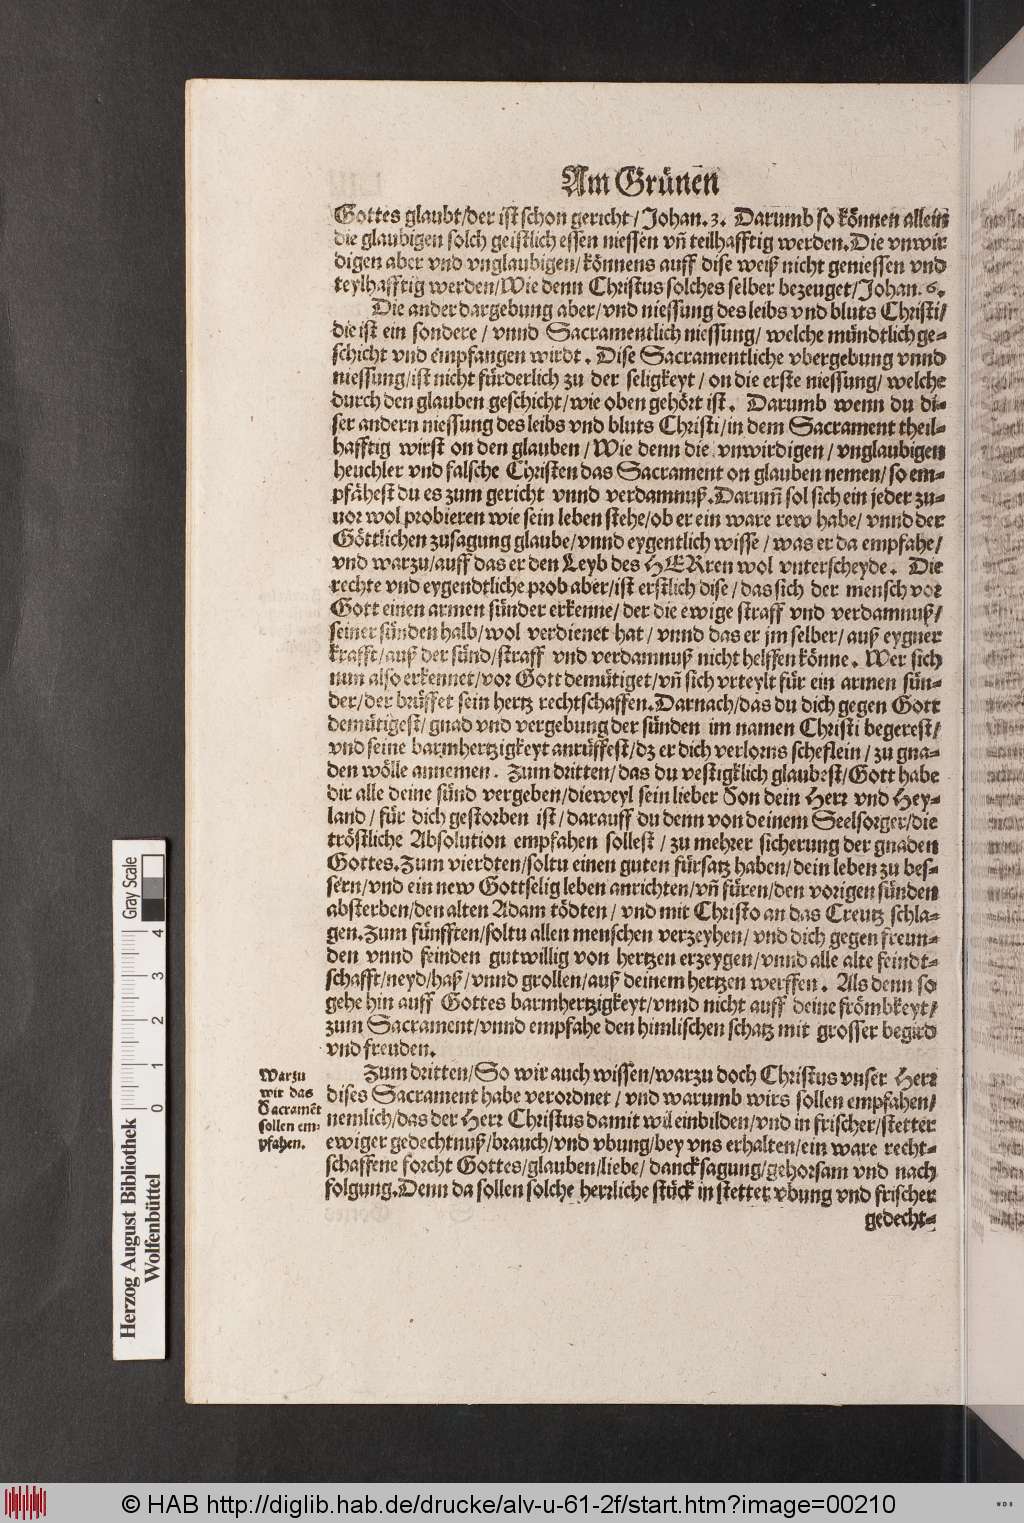 Am Grünen̄
Gottes glaubt/der ist schon gericht/Johan.3. Darumb so können allein
die glaubigen solch geistlich essen niessen vn̄ teilhafftig werden.Die vnwir
digen aber vnd vnglaubigen/könnens auff dise weiß nicht geniessen vnd
teylhafftig werden/Wie denn Christus solches selber bezeuget/Johan.6.
Die ander dargebung aber/vnd niessung des leibs vnd bluts Christi/
die ist ein sondere/ vnnd Sacramentlich niessung/ welche mündtlich ge=
schicht vnd empfangen wirdt. Dise Sacramentliche vbergebung vnnd
niessung/ist nicht fürderlich zu der seligkeyt/ on die erste niessung/ welche
durch den glauben geschicht/wie oben gehört ist. Darumb wenn du di=
ser andern niessung des leibs vnd bluts Christi/in dem Sacrament theil=
hafftig wirst on den glauben/Wie denn die vnwirdigen/ vnglaubigen
heuchler vnd falsche Christen das Sacrament on glauben nemen/ so em=
pfähest du es zum gericht vnnd verdamnuß.Darum̄ sol sich ein jeder zu=
uor wol probieren wie sein leben stehe/ob er ein ware rew habe/ vnnd der
Göttlichen zusagung glaube/vnnd eygentlich wisse/ was er da empfahe/
vnd warzu/auff das er den Leyb des HERren wol vnterscheyde. Die
rechte vnd eygendtliche prob aber/ist erstlich dise/ das sich der mensch vor
Gott einen armen sünder erkenne/ der die ewige straff vnd verdamnuß/
seiner sünden halb/wol verdienet hat/ vnnd das er jm selber/ auß eygner
krafft/auß der sünd/straff vnd verdamnuß nicht helffen könne. Wer sich
nun also erkennet/vor Gott demütiget/vn̄ sich vrteylt für ein armen sün=
der/der brüffet sein hertz rechtschaffen.Darnach/das du dich gegen Gott
demütigest/ gnad vnd vergebung der sünden im namen Christi begerest/
vnd seine barmhertzigkeyt anrüffest/dz er dich verlorns scheflein/ zu gna=
den wölle annemen. Zum dritten/das du vestigklich glaubest/Gott habe
dir alle deine sünd vergeben/dieweyl sein lieber Son dein Herr vnd Hey=
land/ für dich gestorben ist/darauff du denn von deinem Seelsorger/die
tröstliche Absolution empfahen sollest/ zu mehrer sicherung der gnaden
Gottes.Zum vierdten/soltu einen guten fürsatz haben/dein leben zu bes=
sern/vnd ein new Gottselig leben anrichten/vn̄ füren/den vorigen sünden
absterben/den alten Adam tödten/ vnd mit Christo an das Creutz schla=
gen.Zum fünfften/soltu allen menschen verzeyhen/ vnd dich gegen freun=
den vnnd feinden gutwillig von hertzen erzeygen/vnnd alle alte feindt=
schafft/neyd/haß/vnnd grollen/auß deinem hertzen werffen. Als denn so
gehe hin auff Gottes barmhertzigkeyt/vnnd nicht auff deine frömbkeyt/
zum Sacrament/vnnd empfahe den himlischen schatz mit grosser begird
vnd freuden.
Warzu
wir das
Sacramēt
sollen em=
pfahen.
Zum dritten/So wir auch wissen/warzu doch Christus vnser Herr
dises Sacrament habe verordnet/ vnd warumb wirs sollen empfahen/
nemlich/das der Herr Christus damit wil einbilden/vnd in frischer/stetter
ewiger gedechtnuß/brauch/vnd vbung/bey vns erhalten/ein ware recht=
schaffene forcht Gottes/glauben/liebe/ dancksagung/gehorsam vnd nach
folgung.Denn da sollen solche herrliche stück in stetter vbung vnd frischer
gedecht=
Herzog August Bibliothek
Wolfenbüttel
0 1 2 3 4
Gray Scale
© HAB http://diglib.hab.de/drucke/alv-u-61-2f/start.htm?image=00210
WDB